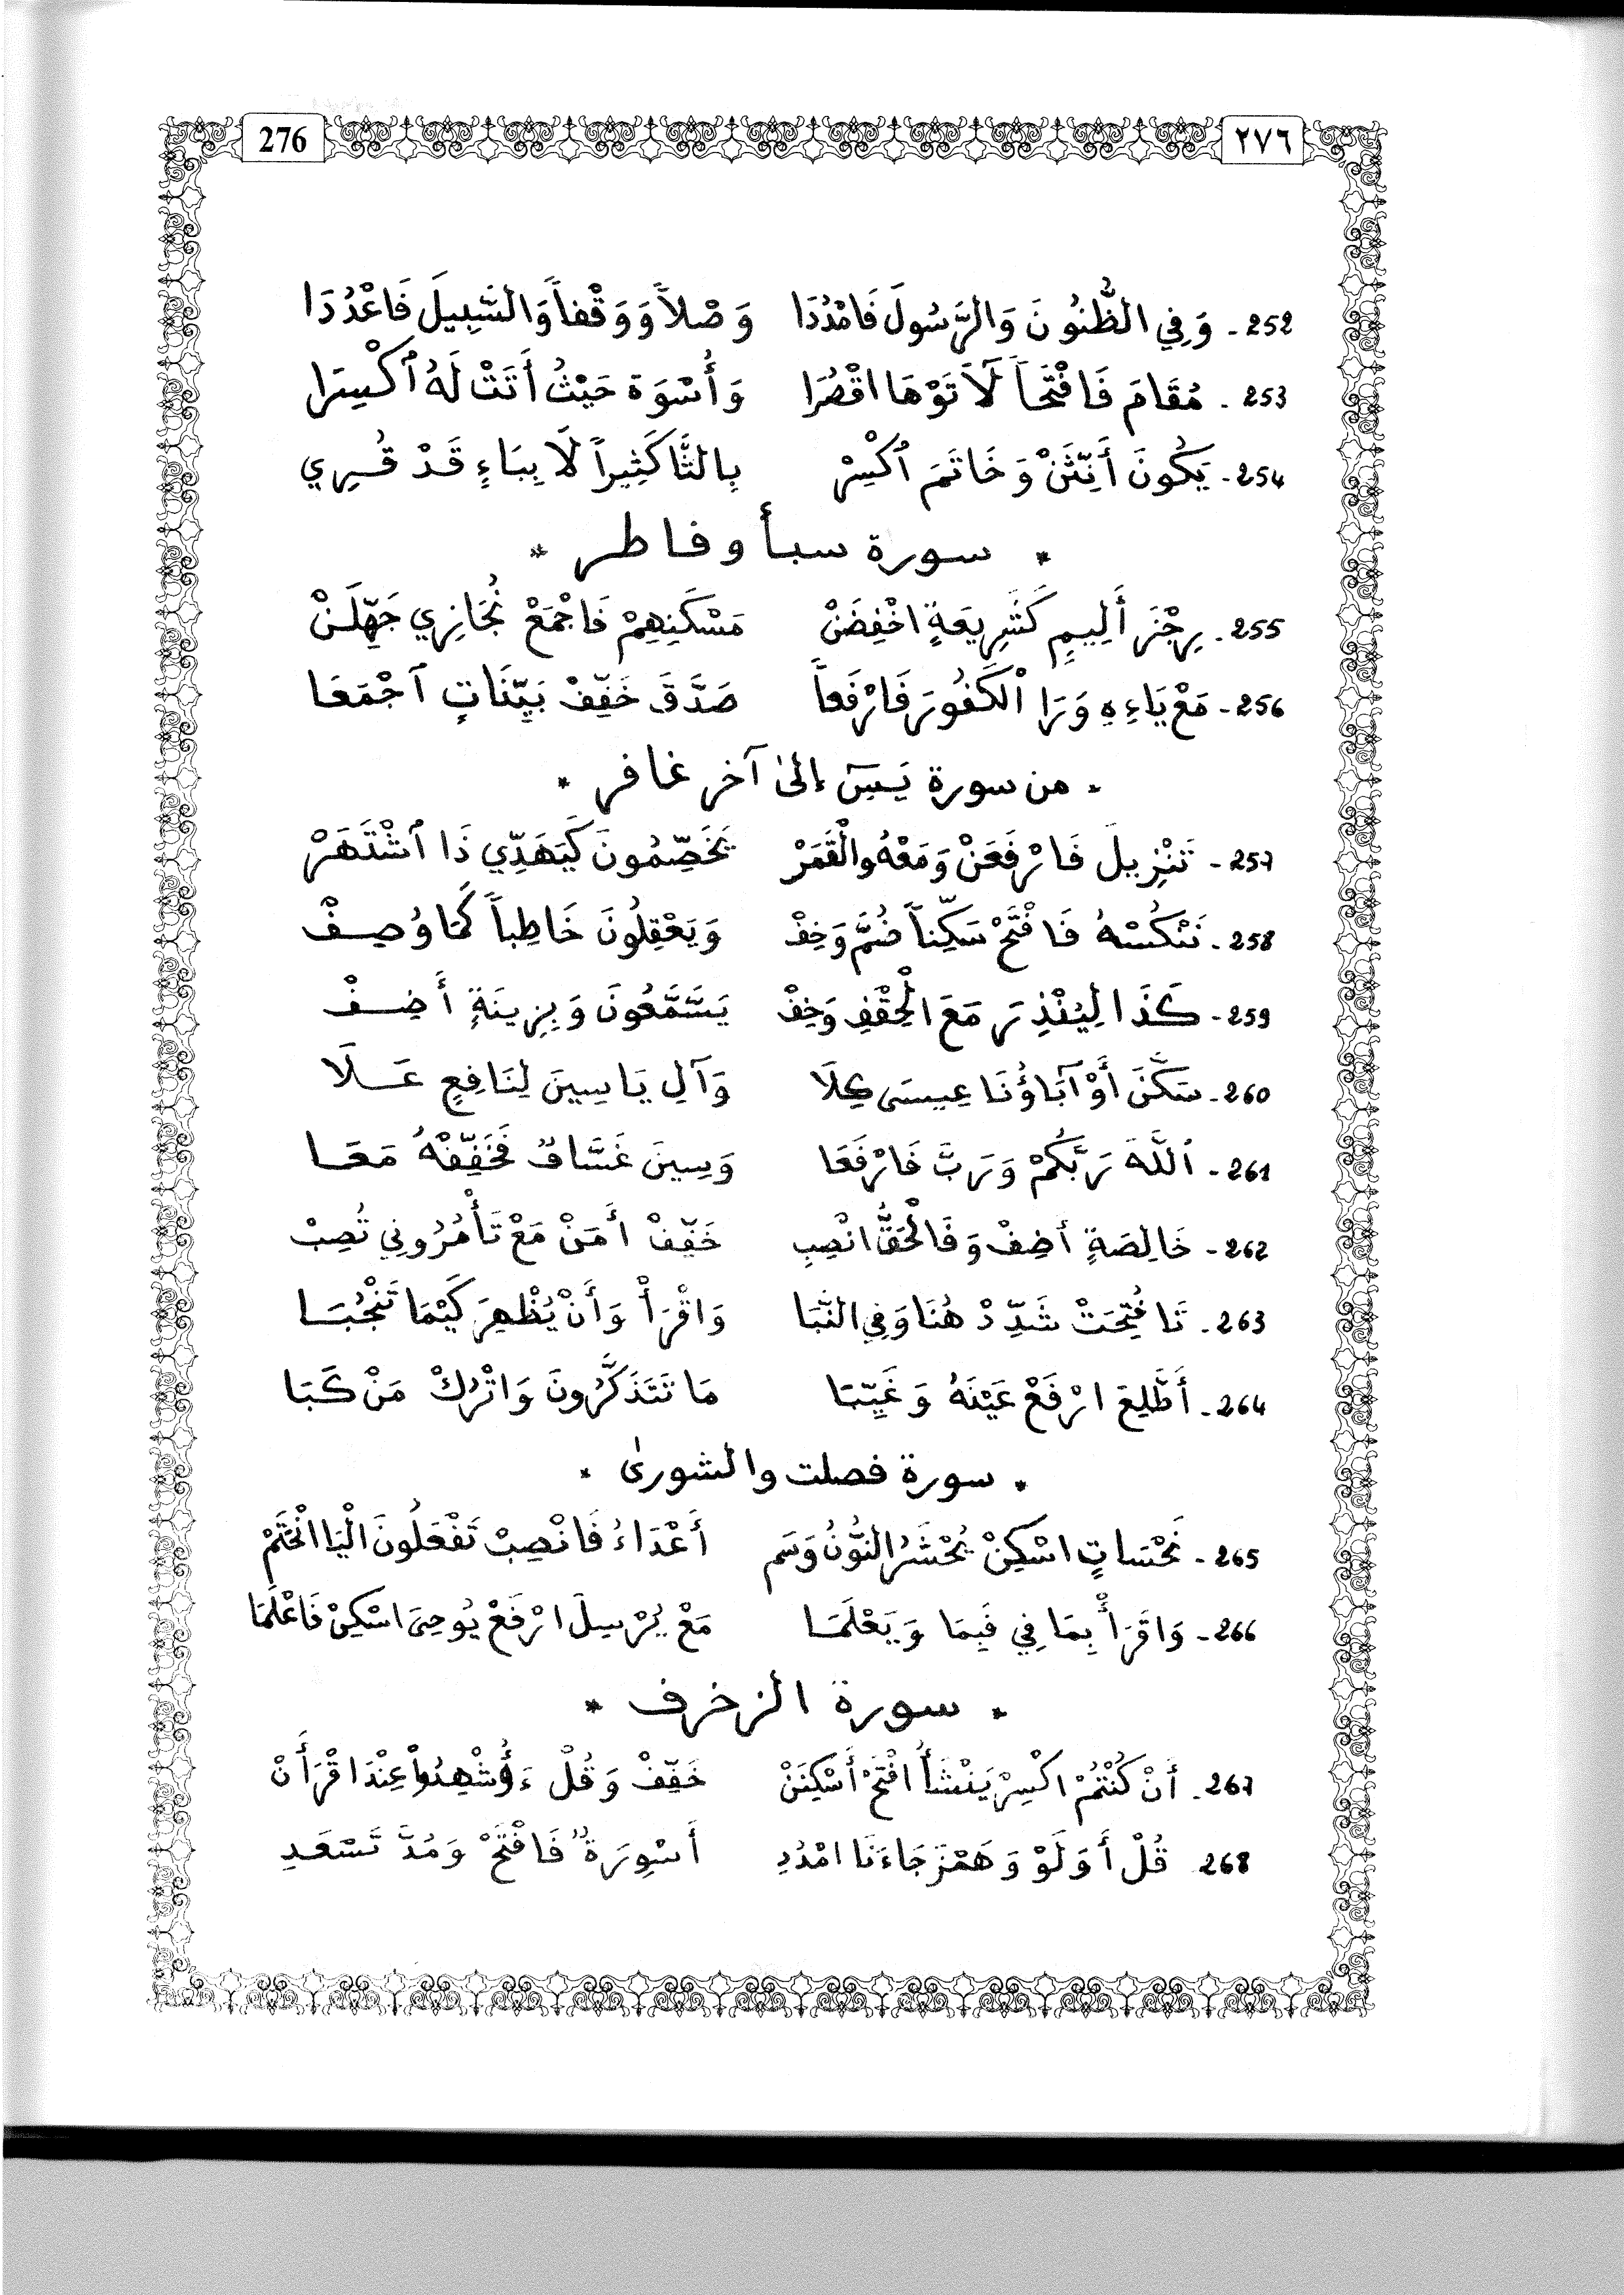 276
٢٧٦
252 - وَفِي الظُّنُونَ وَالرَّسُولَ فَامْدُدَا وَصْلاً وَوَقْفاً وَالسَّبِيلَ فَاعْدُدَا
253 - مُقَامَ فَافْتَحاً لَآتَوْهَا اقْصُرَا وَأُسْوَة حَيْثُ أَتَتْ لَهُ ٱكْسِرَا
254 - يَكُونَ أَنِّثَنْ وَخَاتَمَ ٱكْسِرْ بِالثَّا كَثِيراً لَا بِبَاءٍ قَدْ قُرِي
* سورة سبأ وفاطر *
255 - رِجْزَ أَلِيمٍ كَشَرِيعَةٍ اخْفِضَنْ مَسْكَنِهِمْ فَاجْمَعْ نُجَازِي جَهِّلَنْ
256 - مَعْ يَاءِهِ وَرَا ٱلْكَفُورَ فَارْفَعاً صَدَّقَ خَفِّفْ بَيِّنَاتٍ ٱجْمَعَا
* من سورة يَسٓ إلىٰ آخر غافر *
257 - تَنْزِيلَ فَارْفَعَنْ وَمَعْهُ والْقَمَرْ يَخَصِّمُونَ كَيَهَدِّي ذَا ٱشْتَهَرْ
258 - نَنْكُسْهُ فَافْتَحْ سَكِّناً ضُمَّ وَخِفْ وَيَعْقِلُونَ خَاطِباً كَمَا وُصِفْ
259 - كَذَا لِيُنْذِرَ مَعَ الْحِقْفِ وَخِفْ يَسَّمَّعُونَ وَبِزِينَةٍ أَضِفْ
260 - سَكَّنَ أَوْ آبَاؤُنَا عِيسَى كِلَا وَآلِ يَاسِينَ لِنَافِعٍ عَلَا
261 - ٱللَّهَ رَبَّكُمْ وَرَبَّ فَارْفَعَا وَسِينَ غَسَّاقٌ فَخَفِّفْهُ مَعَا
262 - خَالِصَةٍ أَضِفْ وَفَالْحَقُّ انْصِبِ خَفِّفْ أَمَنْ مَعْ تَأْمُرُونِي تُصِبْ
263 - تَا فُتِحَتْ شَدِّدْ هُنَا وَفِي النَّبَا وَاقْرَأْ وَأَنْ يُظْهِرَ كَيْمَا تَنْجُبَا
264 - أَطَّلِعَ ارْفَعْ عَيْنَهُ وَغَيِّبَا مَا تَتَذَكَّرُونَ وَاتْرُكْ مَنْ كَبَا
* سورة فصلت والشورىٰ *
265 - نَحْسَاتٍ اسْكِنْ يُحْشَرُ النُّونُ وَسَم أَعْدَاءُ فَانْصِبْ تَفْعَلُونَ الْيَا انْحَتَمْ
266 - وَاقَرَأْ بِمَا فِي فَبِمَا وَيَعْلَمَا مَعْ يُرْسِلَ ارْفَعْ يُوحِيَ اسْكِنْ فَاعْلَمَا
* سورة الزخرف *
267 - أَنْ كُنْتُمْ اكْسِرْ يَنْشَأُ افْتَحْ أَسْكِنَنْ خَفِّفْ وَقُلْ ءَأُشْهِدُواْ عِنْدَ اقْرَأَنْ
268 قُلْ أَوَلَوْ وَهَمْزَ جَاءَنَا امْدُدِ أَسْوِرَةٌ فَافْتَحْ وَمُدَّ تَسْعَدِ